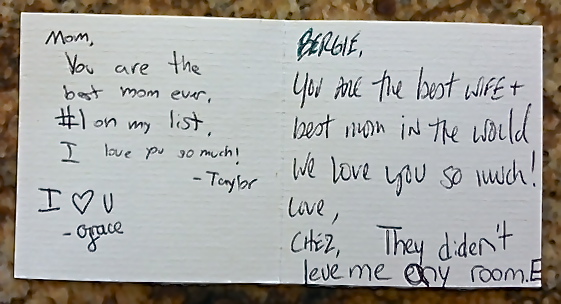 Mom,
You are the
best mom ever,
#1 on my list,
I love you so much!
-Taylor
I ♡ U
-Grace
BERGIE,
YOU ARE the best WIFE +
best mom IN the world
We love you so much!
Love,
CHEZ, They diden't
leve me any room.E